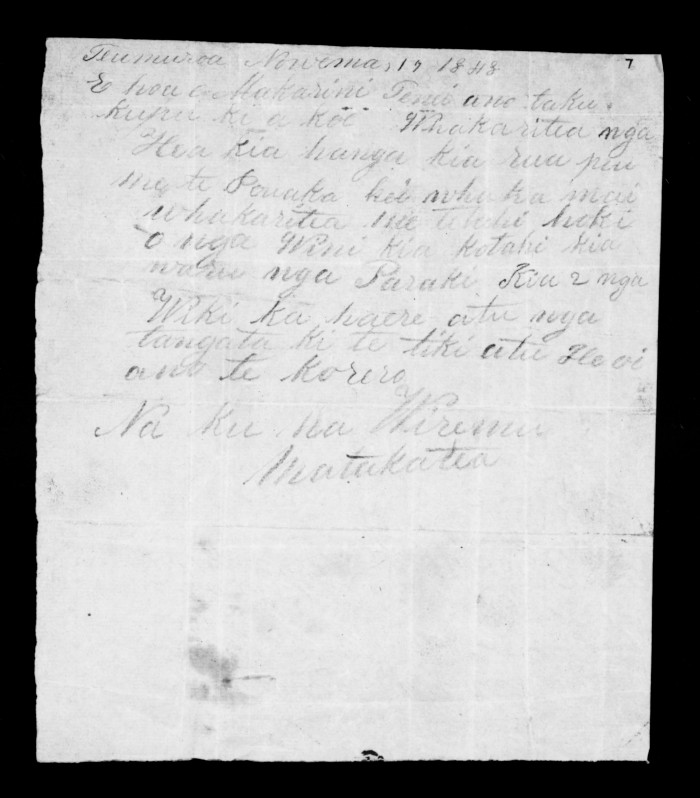 Teumuroa Nowema, 17 1848
7
E hoa e Makarini Tenei ano taku
kupu ki a koe Whakaritea nga
Hea kia hanga kia rua pu
me te Pouaka kei whaka mai
whakaritea me
o nga Wini kia kotahi kia
waru nga Paraki Kia 2 nga
Wiki ka haere atu nga
tangata ki te tiki atu Heoi
ano te korero
Na ku na Wiremu
Matakatea